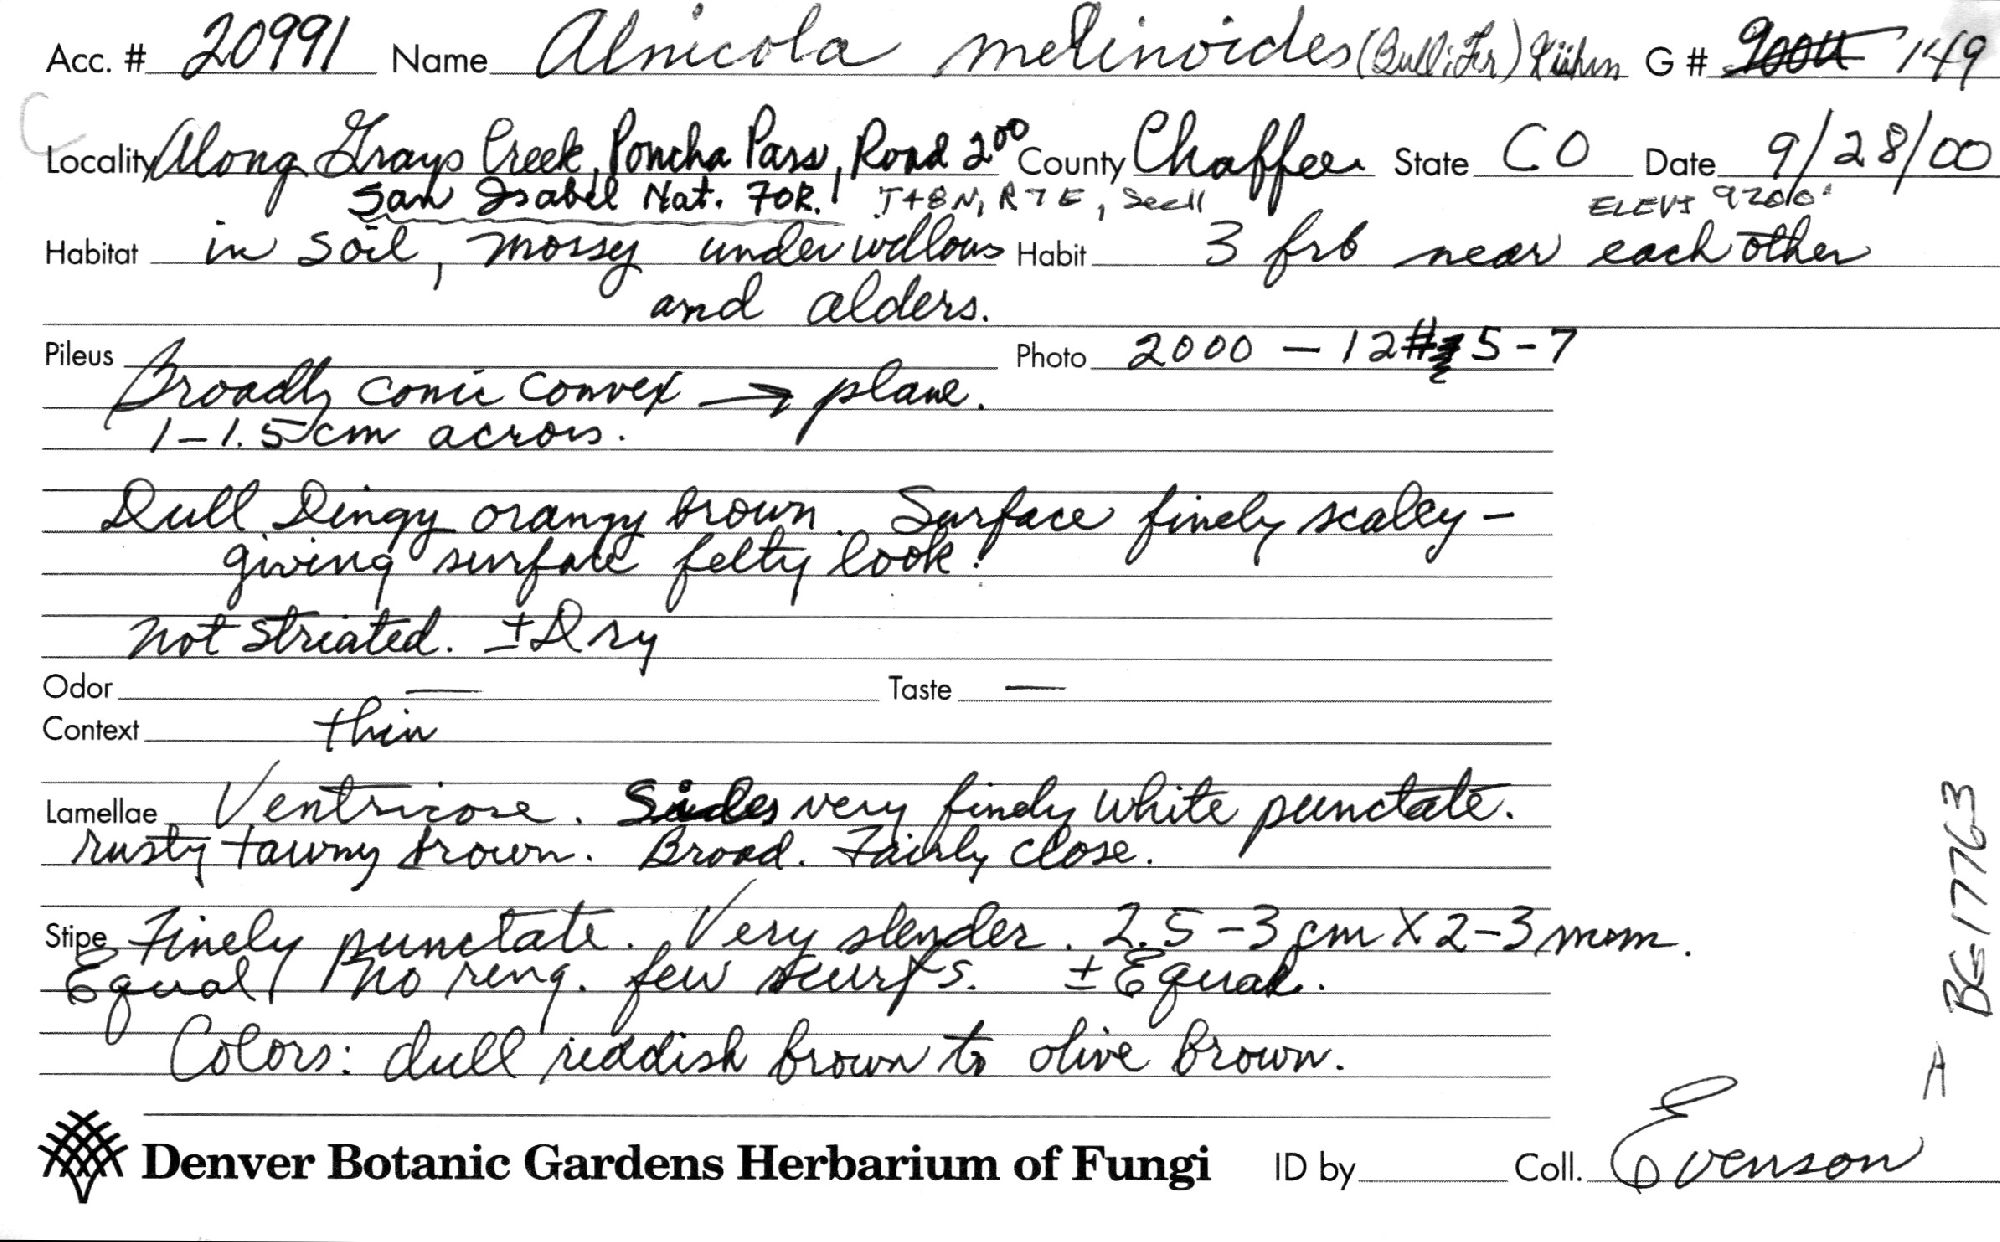 Acc. # 20991 Name Alnicola melinoides (Bull:Fr) Kühn G # 149
Locality Along Grays Creek, Poncha Pass, Road 200 County Chaffee State CO Date 9/28/00
San Isabel Nat. FOR. T48N, R7E, Sec11 ELEV: 9200'
Habitat in soil, mossy under willows Habit 3 frb near each other
and alders.
Pileus Photo 2000 - 12 # 5-7
Broadly conic convex → plane.
1-1.5 cm across.
Dull Dingy orangy brown. Surface finely scaley -
giving surface felty look!
not striated. ± Dry
Odor — Taste —
Context thin
Lamellae Ventricose. Sides very finely white punctate.
rusty tawny brown. Broad. Fairly close.
Stipe Finely punctate. Very slender. 2.5-3 cm X 2-3 mm.
Equal, no ring. few scurfs. ± Equal.
Colors: dull reddish brown to olive brown.
Denver Botanic Gardens Herbarium of Fungi ID by Coll. Evenson
A BG-17763